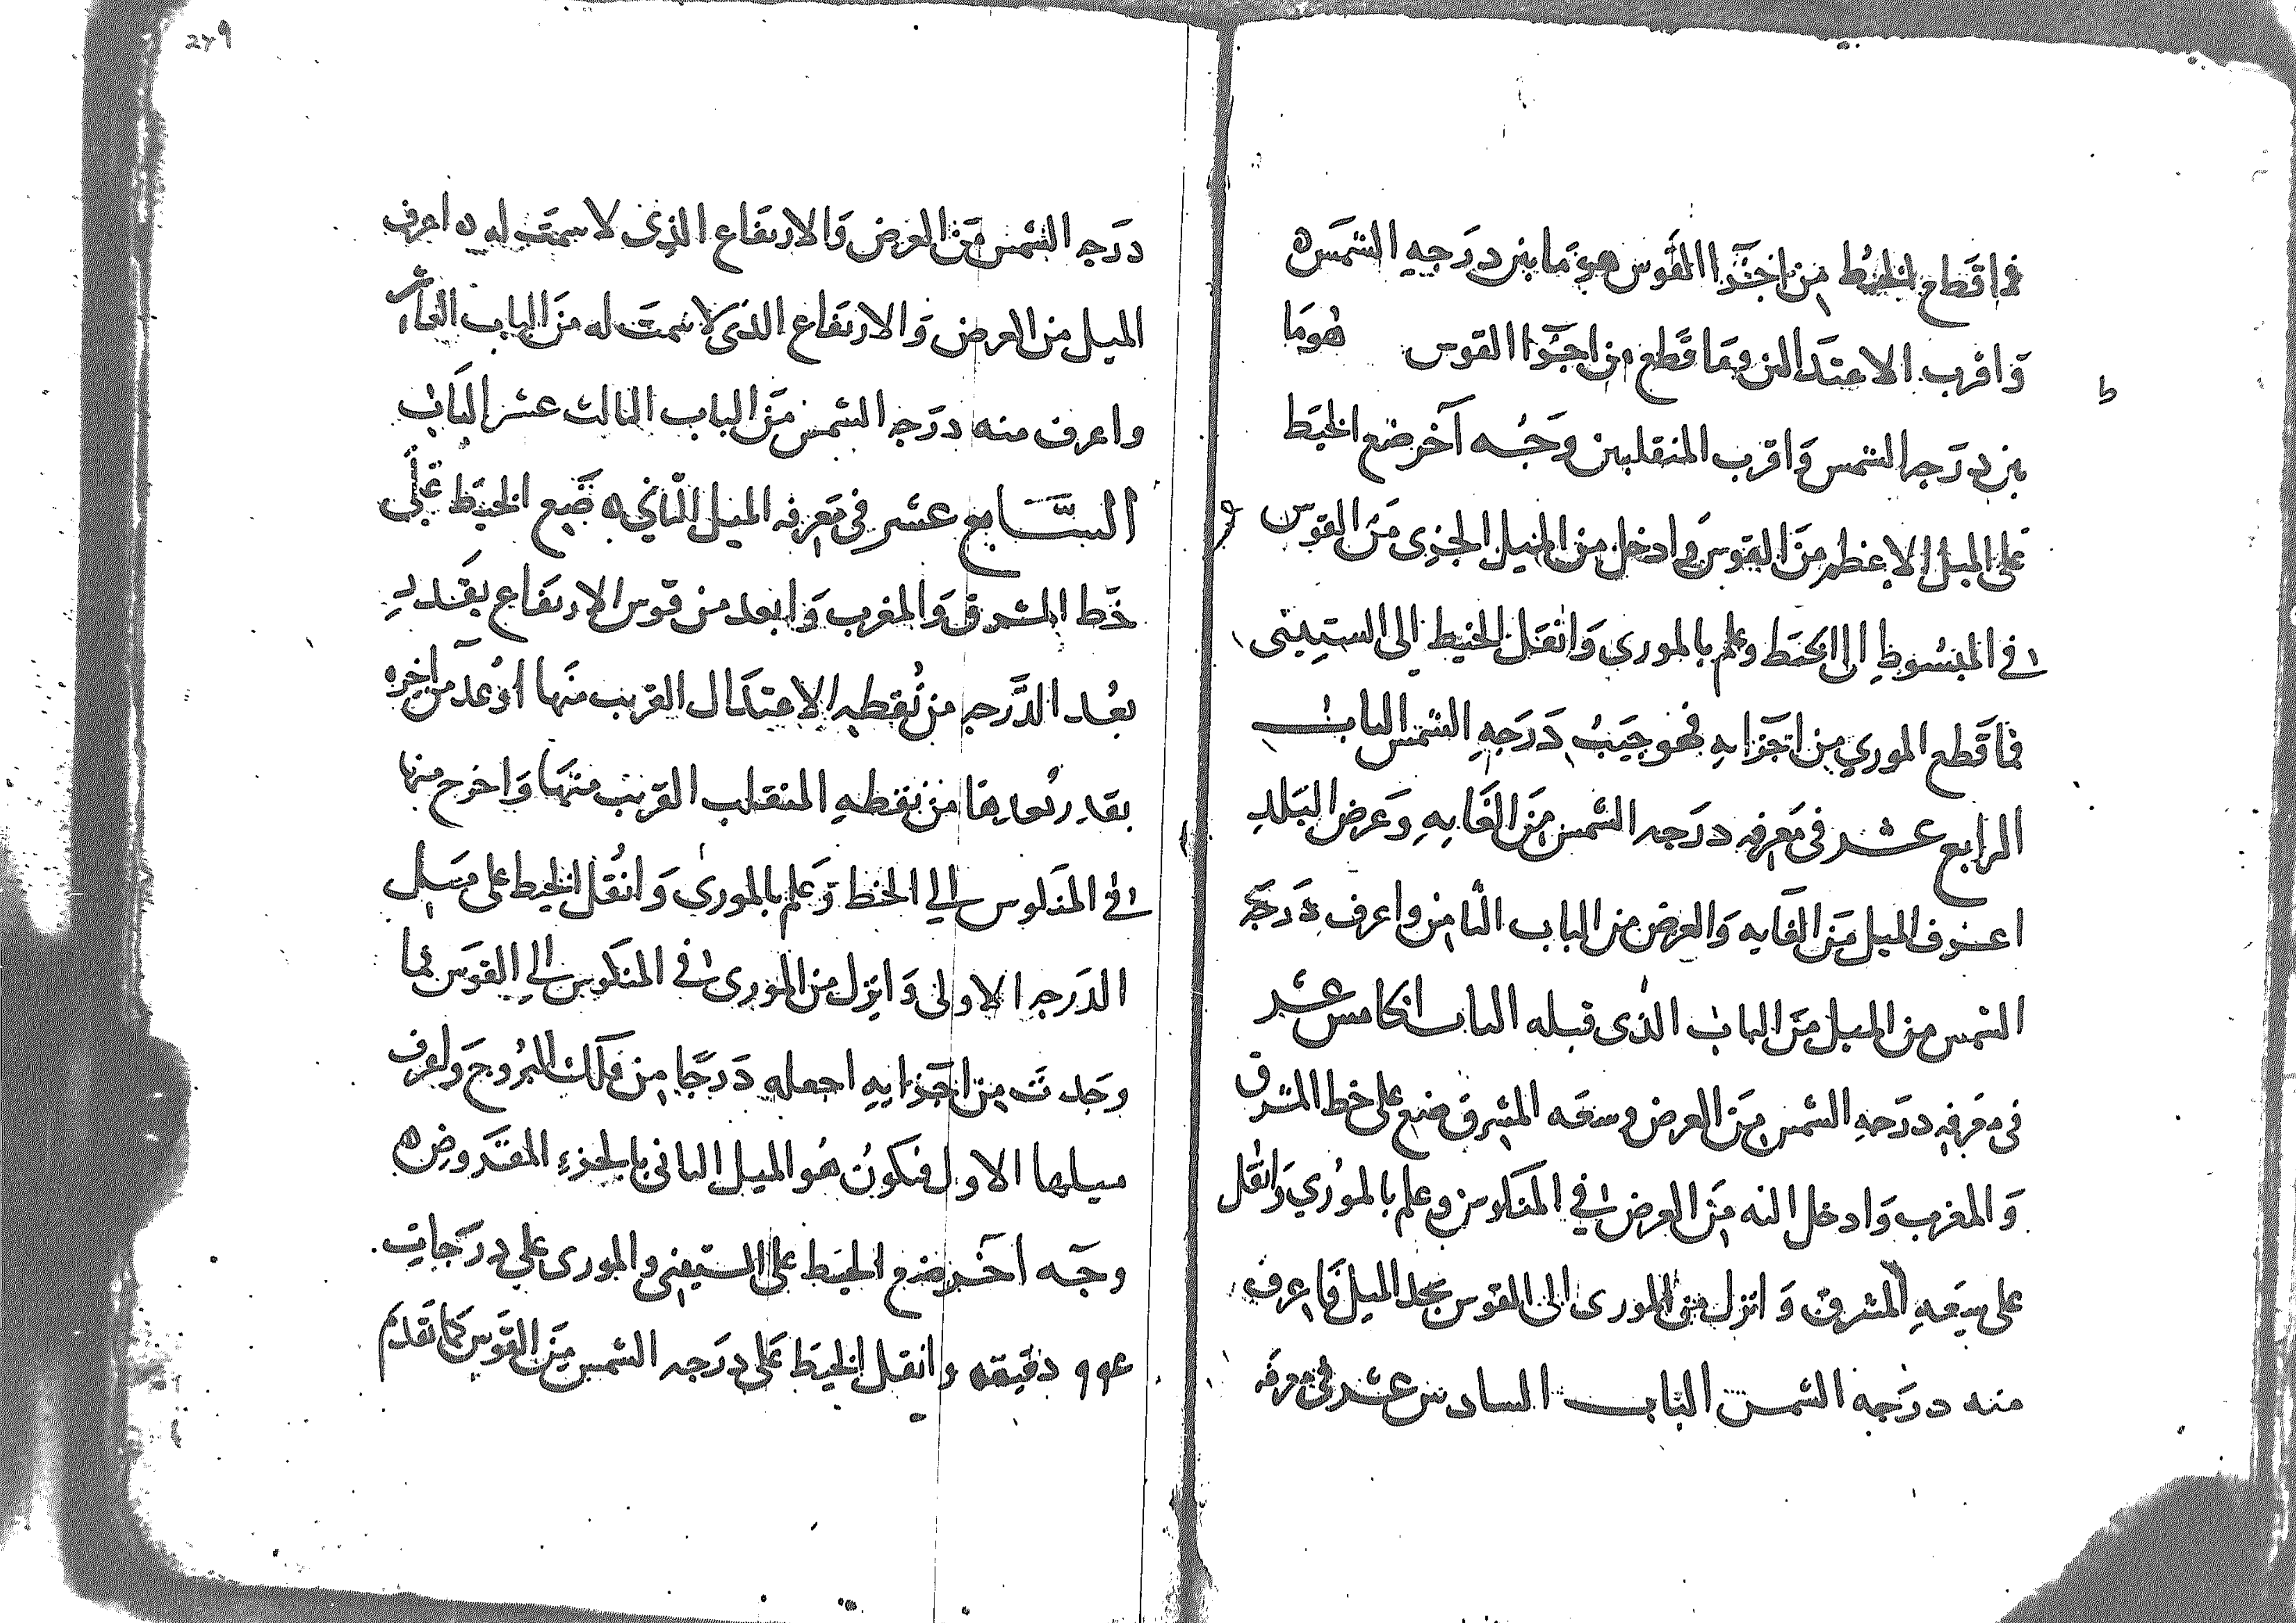 فما قطع الخيط من اجزا القوس هو ما بين درجه الشمس ه
واقرب الاعتدالين وما قطع من اجزا القوس هو ما
بين درجه الشمس واقرب المنقلبين وجه آخر ضع الخيط
على الميل الاعظم من القوس وادخل من الميل الجزى من القوس
في المبسوط الى الخيط وعلم بالموري وانقل الخيط الى الستيني
فما قطع الموري من اجزايه فهو جيب درجه الشمس الباب
الرابع عشر في معرفه درجه الشمس من الغايه وعرض البلد
اعرف الميل من الغايه والعرض من الباب الثامن واعرف درجه
الشمس من الميل من الباب الذى قبله الباب الخامس عشر
في معرفه درجه الشمس من العرض وسعه المشرق ضع على خط المشرق
والمغرب وادخل اليه من العرض في المنكوس وعلم بالموري وانقل
على سعه المشرق وانزل من المورى الى القوس تجد الميل فاعرف
منه درجه الشمس الباب السادس عشر في معرفه
249
درجه الشمس من العرض والارتفاع الذى لا سمت له ه اعرف
الميل من العرض والارتفاع الذى لا سمت له من الباب العاشر
واعرف منه درجه الشمس من الباب الثالث عشر الباب
السابع عشر في معرفه الميل الثاني ه ضع الخيط على
خط المشرق والمغرب وابعد من قوس الارتفاع بقدر
بعد الدرجه من نقطه الاعتدال القريب منها او عد من اخره
بقدر بعدها من نقطه المنقلب القريب منها واخرج منها
في المنكوس الي الخط وعلم بالمورى وانقل الخيط على ميل
الدرجه الاولى وانزل من المورى في المنكوس الي القوس فما
وجدت من اجزايه اجعله درجا من فلك البروج واعرف
ميلها الاول فيكون هو الميل الثاني بالجزء المفروض ه
وجه آخر ضع الخيط على الستيني والمورى علي درجات
دقيقه وانقل الخيط على درجه الشمس من القوس كما تقدم